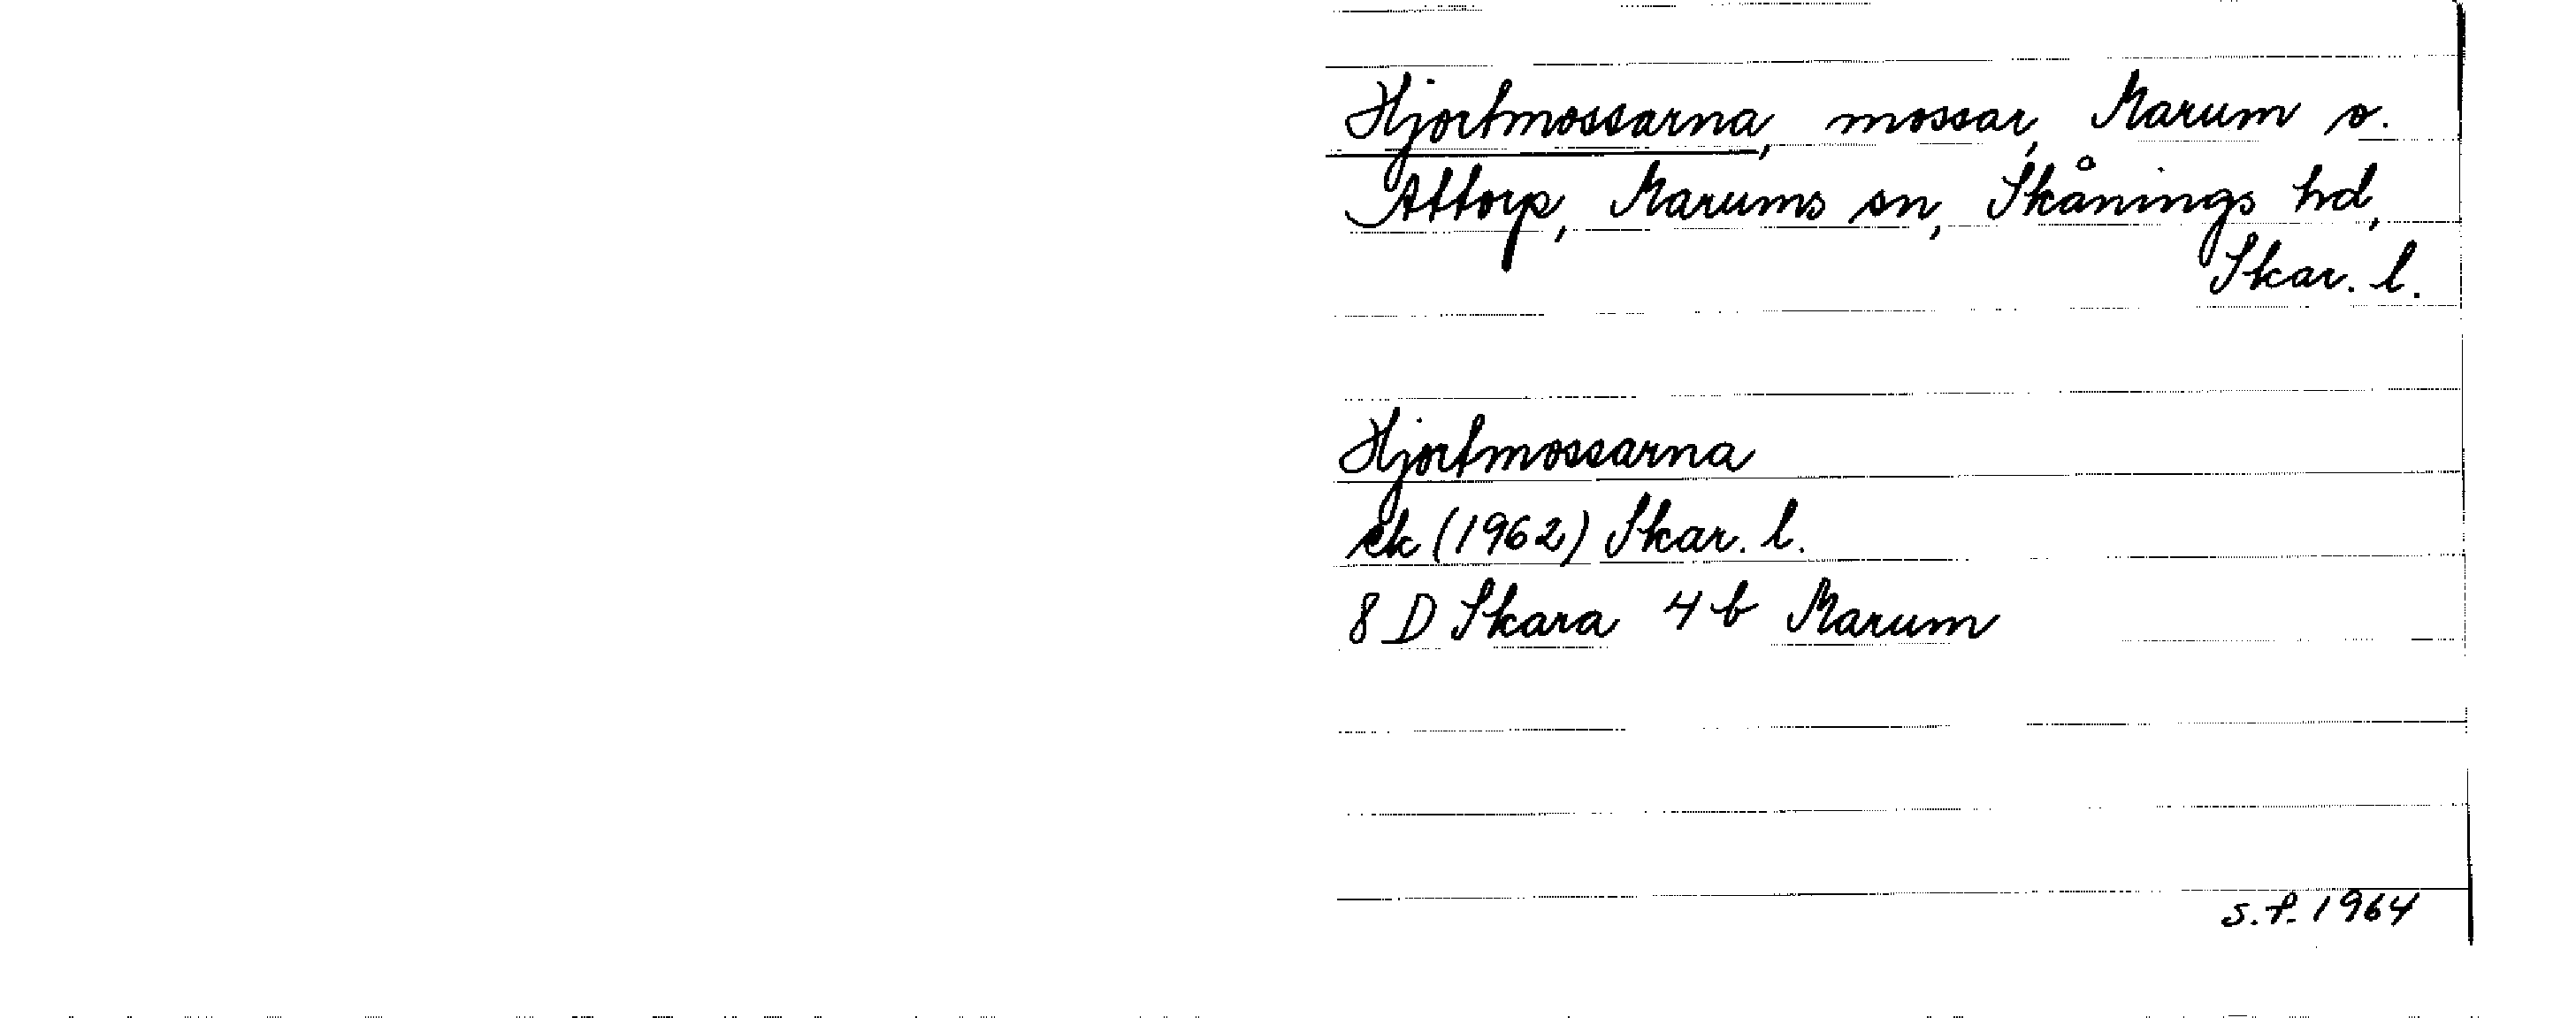 Hjortmossarna, mossar, Marum o.
Attorp, Marums sn, Skånings hd,
Skar. l.
Hjortmossarna
ek (1962) Skar. l.
8 D Skara 4 b Marum
S.F. 1964